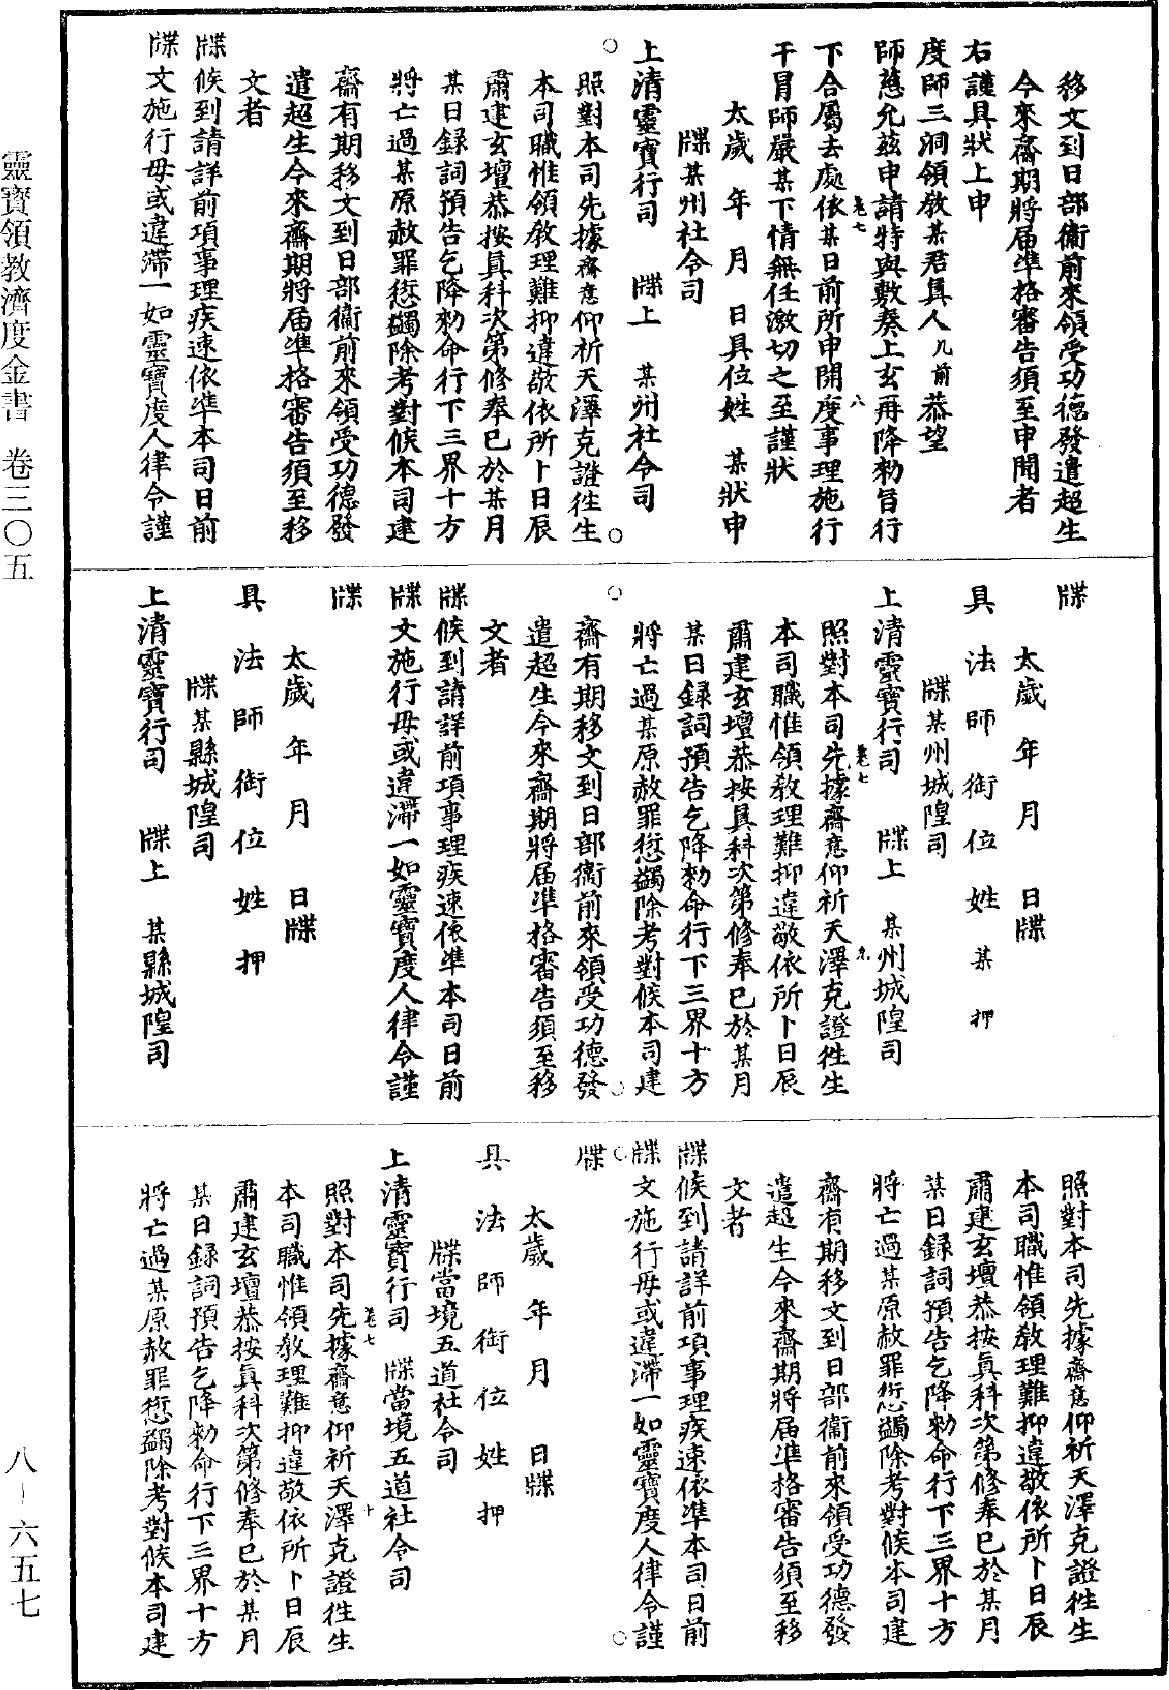 移文到日部衞前來領受功德發遣超生
今來齋期將届準格審告須至申聞者
右謹具狀上申
度師三洞領敎某君眞人几前恭望
師慈允茲申請特與敷奏上玄再降勑旨行
下合屬去處依某日前所申開度事理施行
干冒師嚴某下情無任激切之至謹狀
太歲 年 月 日具位姓 某狀申
牒某州社令司
上清靈寶行司 牒上 某州社令司
照對本司先據齋意仰祈天澤克證徃生
本司職惟領敎理難抑違敬依所卜日辰
肅建玄壇恭按眞科次第修奉已於某月
某日録詞預告乞降勑命行下三界十方
將亡過某原赦罪愆蠲除考對候本司建
齋有期移文到日部衞前來領受功德發
遣超生今來齋期將届準格審告須至移
文者
牒候到請詳前項事理疾速依準本司日前
牒文施行毋或違滯一如靈寶度人律令謹
牒
太歲 年 月 日牒
具 法 師 銜 位 姓 某 押
牒某州城隍司
上清靈寶行司 牒上 某州城隍司
照對本司先據齋意仰祈天澤克證徃生
本司職惟領敎理難抑違敬依所卜日辰
肅建玄壇恭按眞科次第修奉已於某月
某日録詞預告乞降勑命行下三界十方
將亡過某原赦罪愆蠲除考對候本司建
齋有期移文到日部衞前來領受功德發
遣超生今來齋期將届準格審告須至移
文者
牒候到請詳前項事理疾速依準本司日前
牒文施行毋或違滯一如靈寶度人律令謹
牒
太歲 年 月 日牒
具 法 師 銜 位 姓 押
牒某縣城隍司
上清靈寶行司 牒上 某縣城隍司
照對本司先據齋意仰祈天澤克證徃生
本司職惟領敎理難抑違敬依所卜日辰
肅建玄壇恭按眞科次第修奉已於某月
某日録詞預告乞降勑命行下三界十方
將亡過某原赦罪愆蠲除考對候本司建
齋有期移文到日部衞前來領受功德發
遣超生今來齋期將届準格審告須至移
文者
牒候到請詳前項事理疾速依準本司日前
牒文施行毋或違滯一如靈寶度人律令謹
牒
太歲 年 月 日牒
具 法 師 銜 位 姓 押
牒當境五道社令司
上清靈寶行司 牒當境五道社令司
照對本司先據齋意仰祈天澤克證徃生
本司職惟領敎理難抑違敬依所卜日辰
肅建玄壇恭按眞科次第修奉已於某月
某日録詞預告乞降勑命行下三界十方
將亡過某原赦罪愆蠲除考對候本司建
卷七 八
卷七 九
卷七 十
靈寶領教濟度金書 卷三〇五
八-六五七